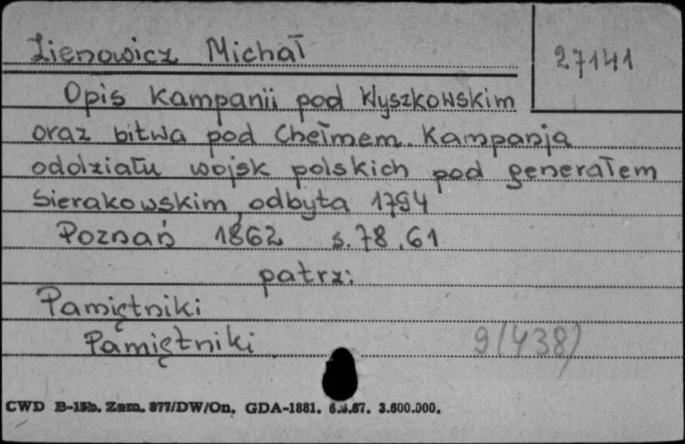 Zienowicz Michał
27141
Opis kampanii pod Wyszkowskim
oraz bitwa pod Chełmem. Kampanja
oddziału wojsk polskich pod generałem
Sierakowskim odbyta 1794
Poznań 1862 s. 78, 61
patrz:
Pamiętniki
Pamiętniki
9(438)
CWD B-15b. Zam. 877/DW/On. GDA-1881. 67. 3.600.000.